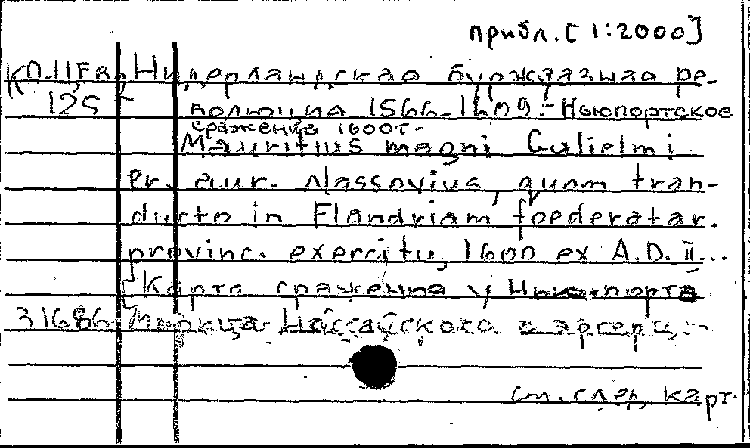 прибл. [1:2000]
Нидерландская буржуазная ре-
125 волюция 1566-1609.- Ньюпортское
сражение 1600 г.
Mauritius magni Gulielmi
Pr. aur. Nassovius, quom tran-
ducto in Flandriam foederatar.
provinc. exercitu, 1600 ex A.D. II...
[Карта сражения у Ньюпорта
31686 Морица Нассауского с эрцерц-
См. след. карт.